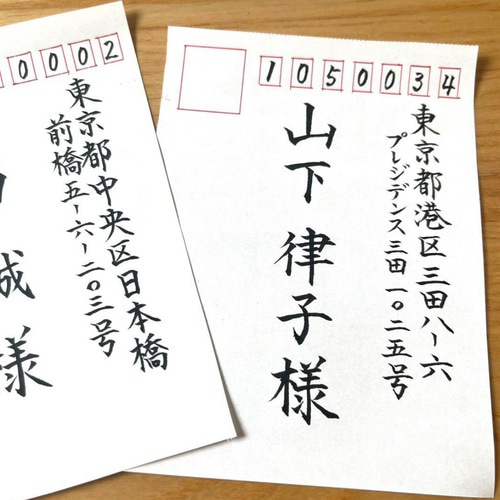 1050034
東京都港区三田八-六
プレジデンス三田一〇二五号
山下律子様
0002
東京都中央区日本橋
前橋五-六-二〇三号
成様